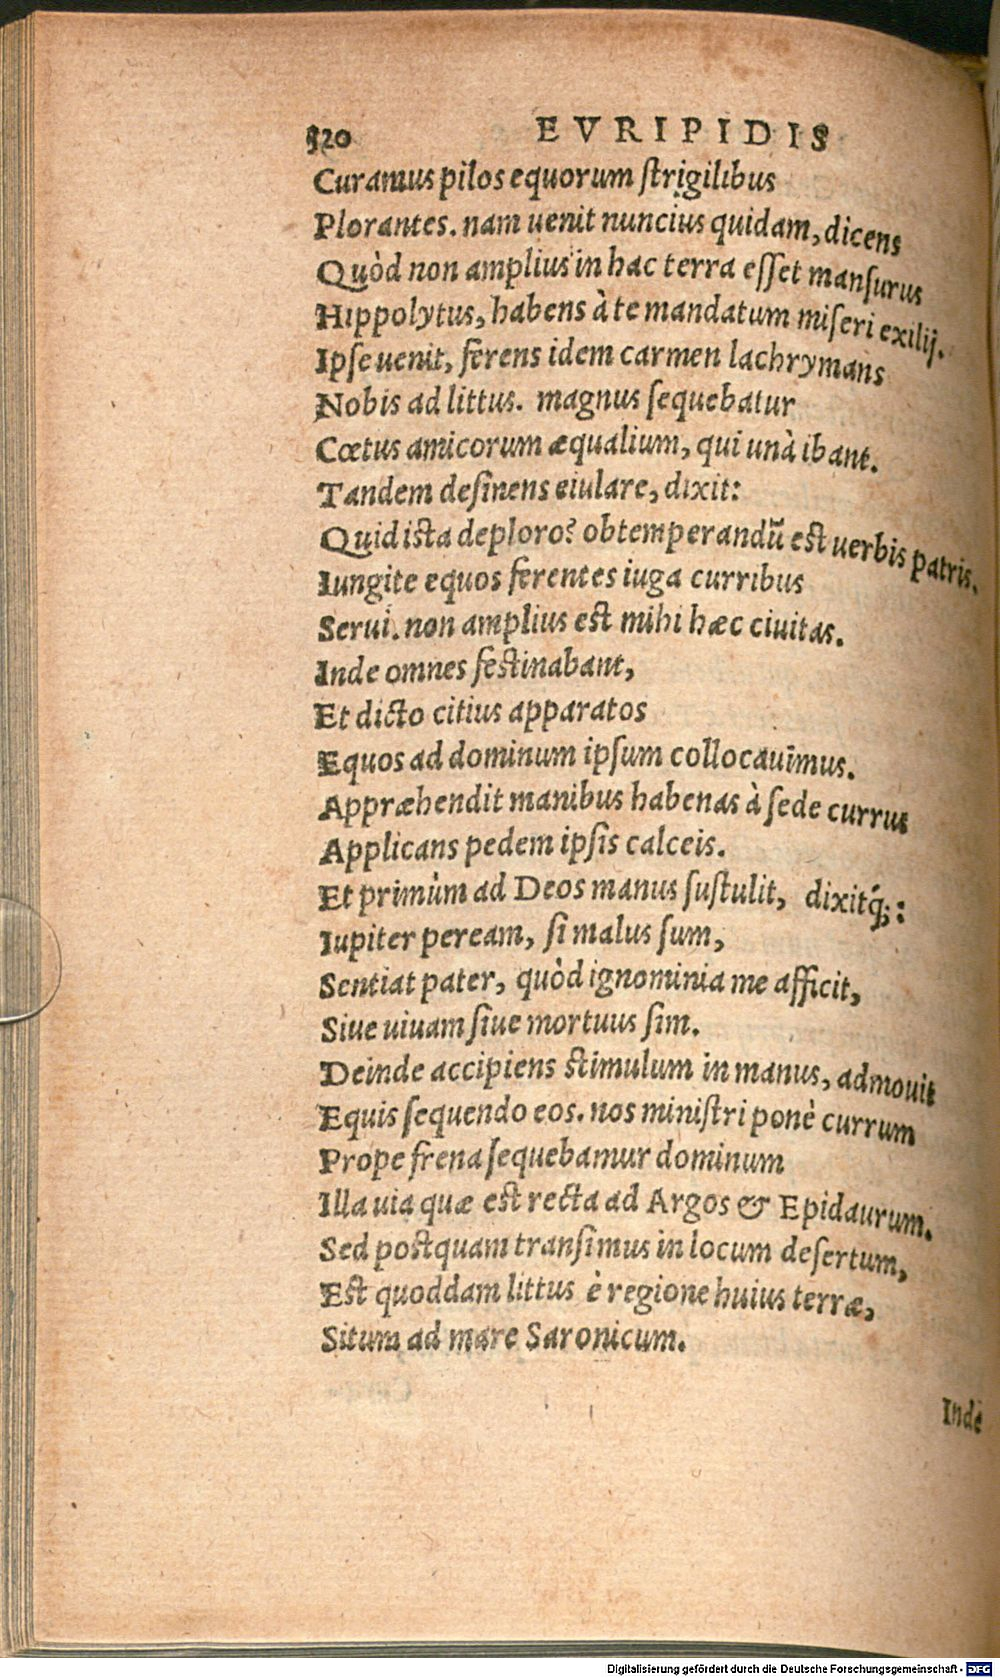 320 EVRIPIDIS
Curamus pilos equorum ſtrigilibus
Plorantes. nam uenit nuncius quidam, dicens
Quòd non amplius in hac terra eſſet manſurus
Hippolytus, habens à te mandatum miſeri exilij.
Ipſe uenit, ferens idem carmen lachrymans
Nobis ad littus. magnus ſequebatur
Cœtus amicorum æqualium, qui unà ibant.
Tandem deſinens eiulare, dixit:
Quid iſta deploro? obtemperandũ eſt uerbis patris.
Iungite equos ferentes iuga curribus
Serui. non amplius eſt mihi hæc ciuitas.
Inde omnes feſtinabant,
Et dicto citius apparatos
Equos ad dominum ipſum collocauimus.
Appræhendit manibus habenas à ſede currus
Applicans pedem ipſis calceis.
Et primùm ad Deos manus ſuſtulit, dixitq́;:
Iupiter peream, ſi malus ſum,
Sentiat pater, quòd ignominia me afficit,
Siue uiuam ſiue mortuus ſim.
Deinde accipiens ſtimulum in manus, admouit
Equis ſequendo eos. nos miniſtri ponè currum
Prope frena ſequebamur dominum
Illa uia quæ eſt recta ad Argos & Epidaurum.
Sed poſtquam tranſimus in locum deſertum,
Eſt quoddam littus è regione huius terræ,
Situm ad mare Saronicum.
Inde
Digitalisierung gefördert durch die Deutsche Forschungsgemeinschaft - DFG